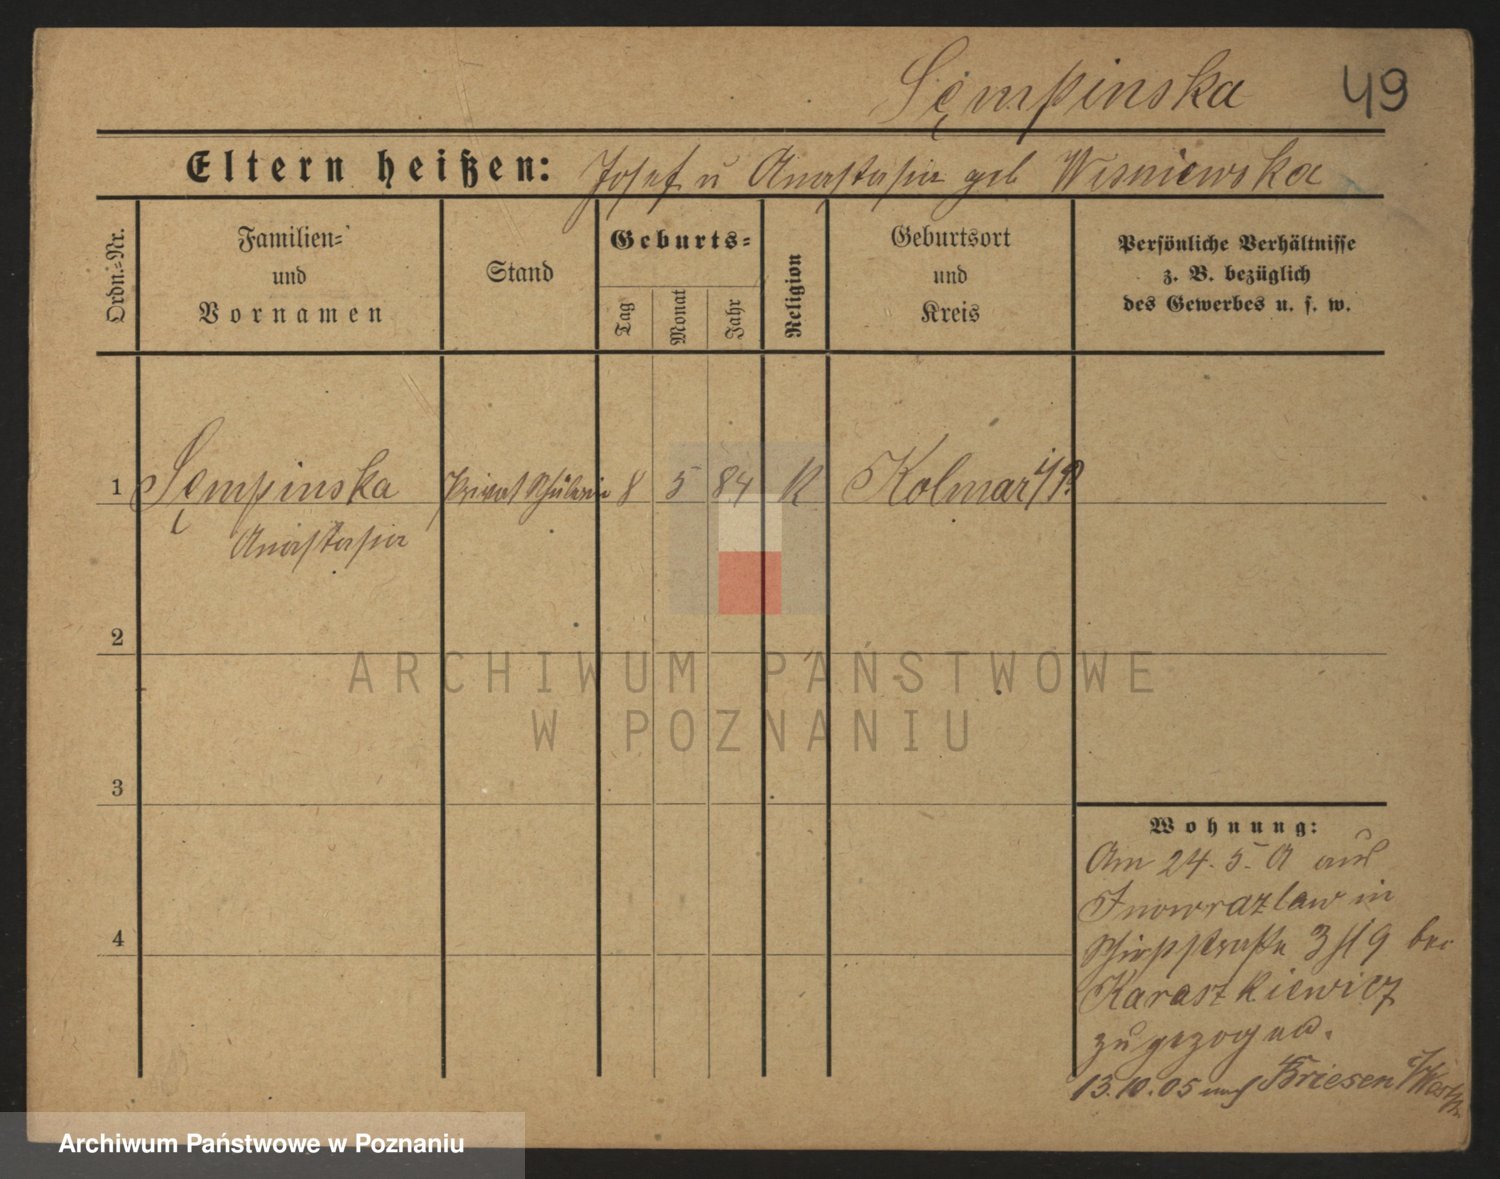 Sempinska 49
Eltern heißen: Josef u Anastasia geb Wisniewska
Ordn.-Nr.
Familien-
und
Vornamen
Stand
Geburts-
Tag
Monat
Jahr
Religion
Geburtsort
und
Kreis
Persönliche Verhältnisse
z. B. bezüglich
des Gewerbes u. s. w.
1 Sempinska Privat Schülerin 8 5 84 K Kolmar i/P
Anastasia
2
ARCHIWUM PAŃSTWOWE
W POZNANIU
3
Wohnung:
Am 24. 5. aus
Inowrazlaw in
3 bei
Karaszkiewicz
zugezogen.
4
13.10.05 nach Briesen i/Westp
Archiwum Państwowe w Poznaniu